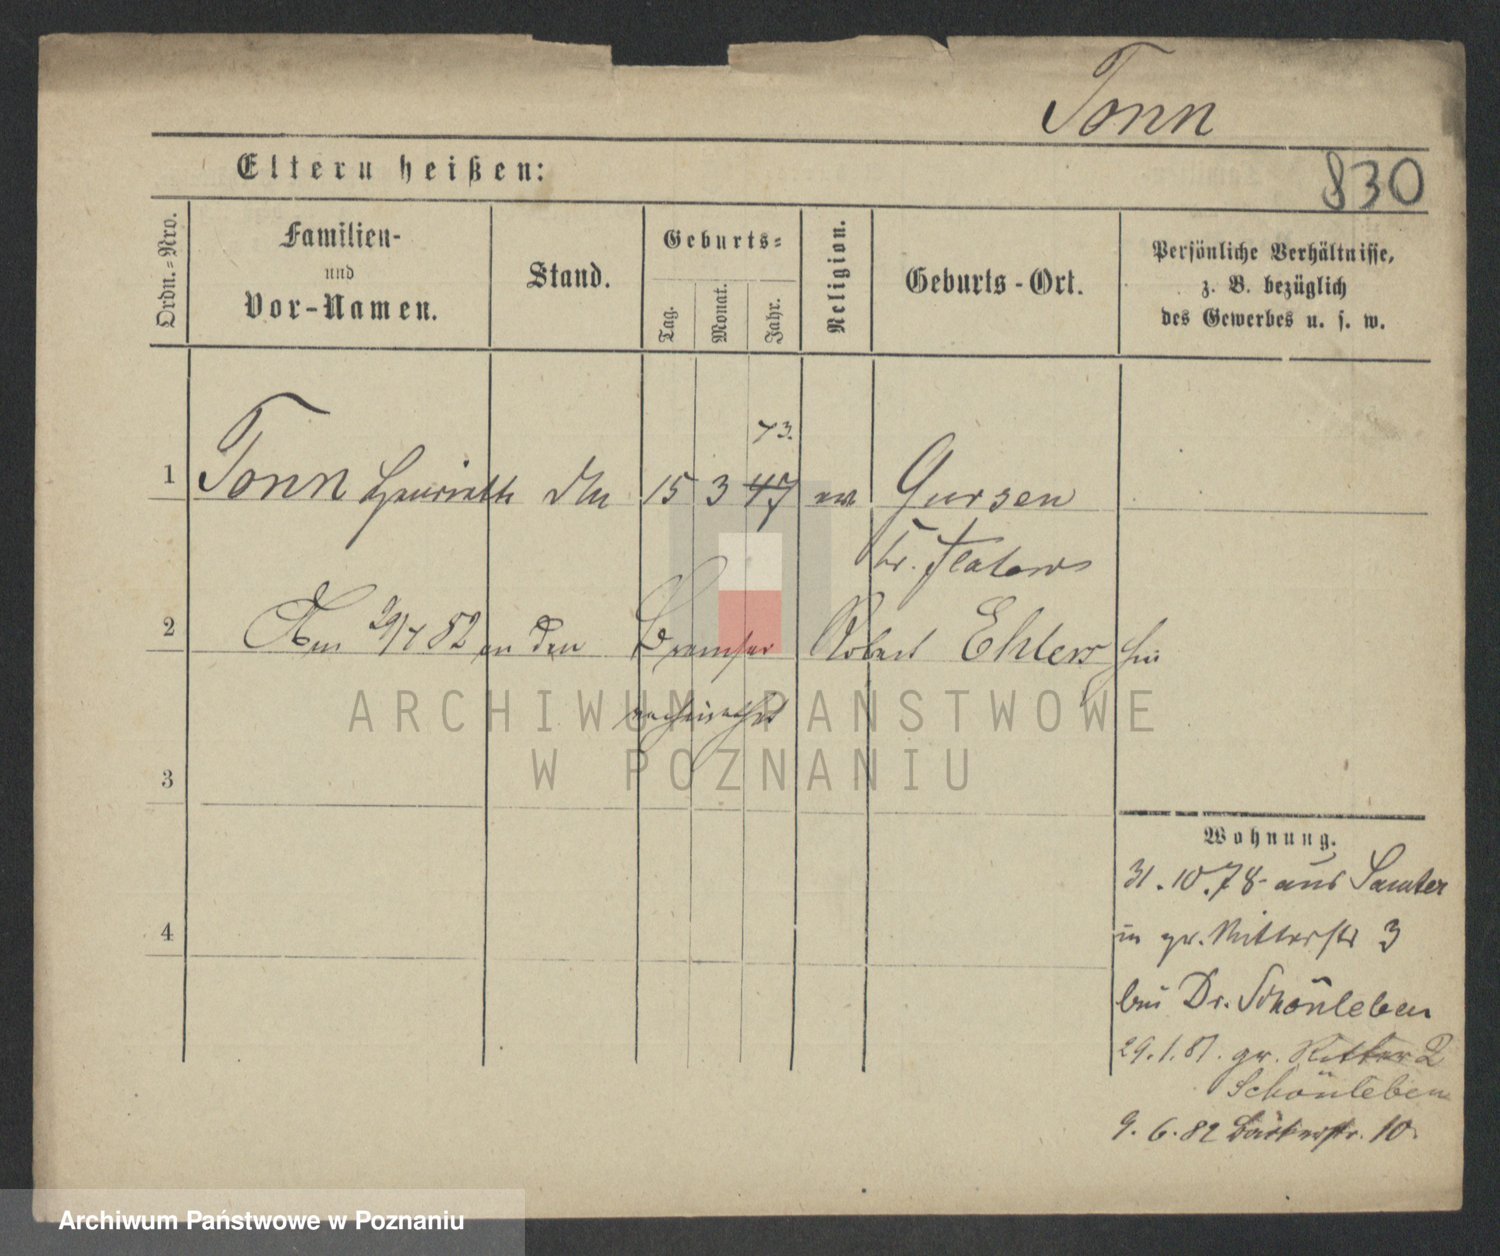 Tonn
Eltern heißen:
830
Ordn.-Nro.
Familien-
und
Vor-Namen.
Stand.
Geburts-
Tag.
Monat.
Jahr.
Religion.
Geburts-Ort.
Persönliche Verhältnisse,
z. B. bezüglich
des Gewerbes u. s. w.
73.
1 Tonn Henriette 15 3 47 ev Gursen
Kr. Flatow
2 Am 29/7 82 an den Bremser Robert Ehlers hier
verheirathet
3
4
Wohnung.
31.10.78 aus Samter
in gr. Ritterstr 3
bei Dr. Schönleben
29.1.81. gr. Ritter 2
Schönleben
9.6.82 Bäckerstr. 10.
ARCHIWUM PAŃSTWOWE
W POZNANIU
Archiwum Państwowe w Poznaniu